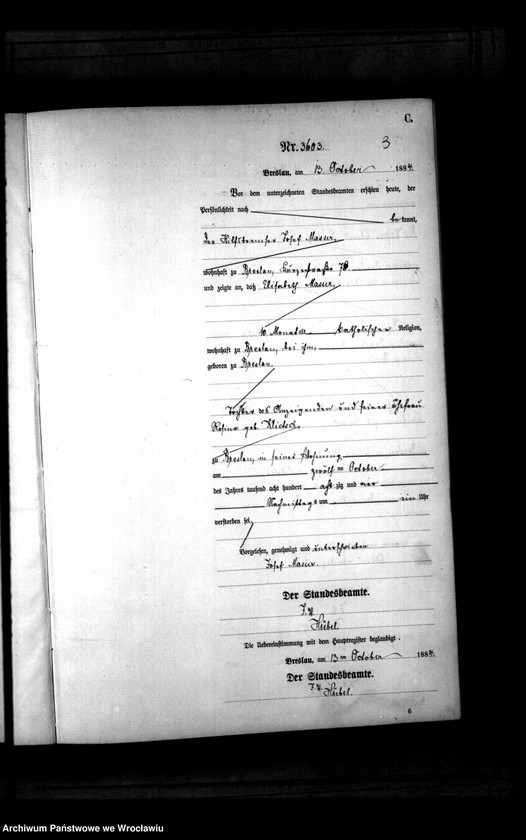 C.
Nr. 3603.
3
Breslau, am 13. October 1884.
Vor dem unterzeichneten Standesbeamten erschien heute, der
Persönlichkeit nach
bekannt,
der Hilfsbremser Josef Masur.
wohnhaft zu Breslau, Kurzestraße
und zeigte an, daß Elisabeth Masur,
10 Monate katholischer Religion,
wohnhaft zu Breslau, bei ihm,
geboren zu Breslau,
Tochter des Anzeigenden und seiner Ehefrau
Rosina geb.
zu Breslau, in seiner Wohnung,
am zwölften October
des Jahres tausend acht hundert achtzig und vier
Nachmittags um ein Uhr
verstorben sei.
Vorgelesen, genehmigt und unterschrieben
Josef Masur.
Der Standesbeamte.
I. V.
Die Uebereinstimmung mit dem Hauptregister beglaubigt.
Breslau, am 13ten October 1884.
Der Standesbeamte.
I. V.
6
Archiwum Państwowe we Wrocławiu